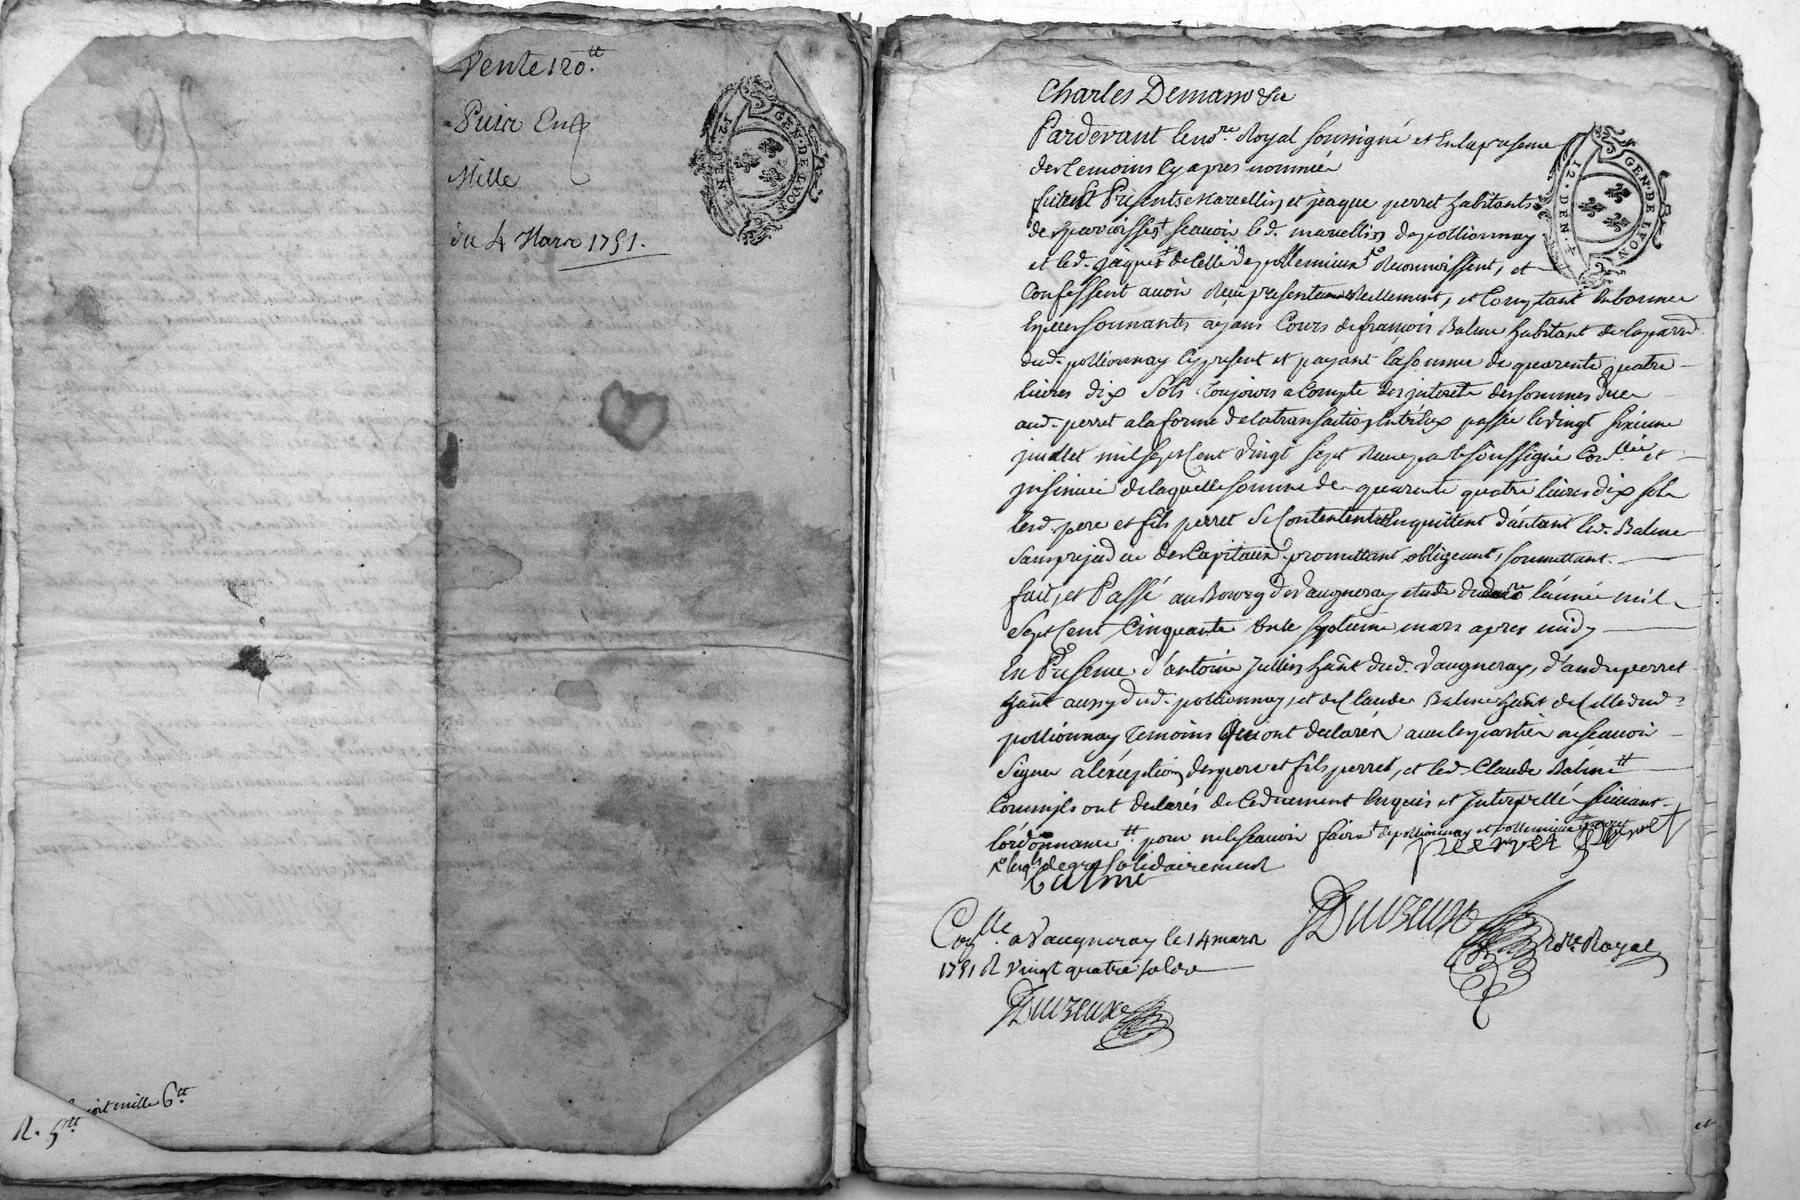 Vente 120.tt
Puir
Mille
du 4 Mars 1751.
12. DEN. 4
GEN. DE LYON
mille 6tt
R. 5tt
Charles
Pardevant le no.re Royal soussigné et en la presence
des temoins cy apres nommés
furent Presents Marcellin et jeaque perret habitants
des parroisses sçauoir led. marcellin de pollionnay
et led. jaques de celle de pollemieux Reconnoissent, et
Confessent auoir Receu presentement Reellement, et Comptant en bonnes
Especes sonnantes ayans Cours de françois Balme habitant de la parr.
dud. pollionnay cy present et payant la somme de quarente quatre
liures dix sols toujours a Compte des jnterets des sommes dues
aud. perret a la forme de la transaction entr'eux passée le vingt sixieme
juillet mil sept Cent vingt sept Receue par le soussigné Con.llée et
jnsinuée de laquelle somme de quarente quatre liures dix sols
lesd. pere et fils perret se Contentent et En quittent d'autant led. Balme
sans prejudice des Capitaux. promettant obligeant, soumettant.
fait, et Passé au Bourg de Vaugneray etude dud. no.re l'année mil
sept Cent Cinquante Un le septieme mars apres midy
En Presence d'antoine jullien hant. dud. Vaugneray, d'andre perret
hant. aussy dud. pollionnay, et de Claude Balme hant. de celle dud.
pollionnay temoins Qui ont declarés auec les parties ne sçauoir
signer a l'exeption des pere et fils perret, et led. Claude Balme tt
Comm'jls ont declarés de ce duement enquis et jnterpellé suiuant
l'ordonnance tt pour ne le sçauoir faire † de pollionnay et pollemieux
solidairement
perret perret
balme
Duvzeux no.re Royal
Con.lle a Vaugneray le 14 mars
1751 R Vingt quatre sols
Duvzeux
12. DEN. 4
GEN. DE LYON
et